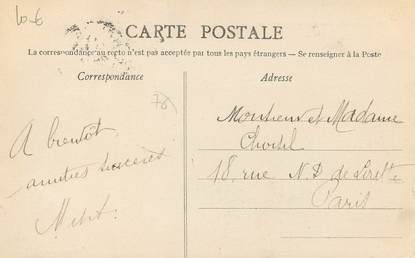 10-6
CARTE POSTALE
La correspondance au recto n'est pas acceptée par tous les pays étrangers — Se renseigner à la Poste
Correspondance
Adresse
78
A bientôt
amitiés sincères
Monsieur et Madame
18, rue N. D. de Lorette
Paris